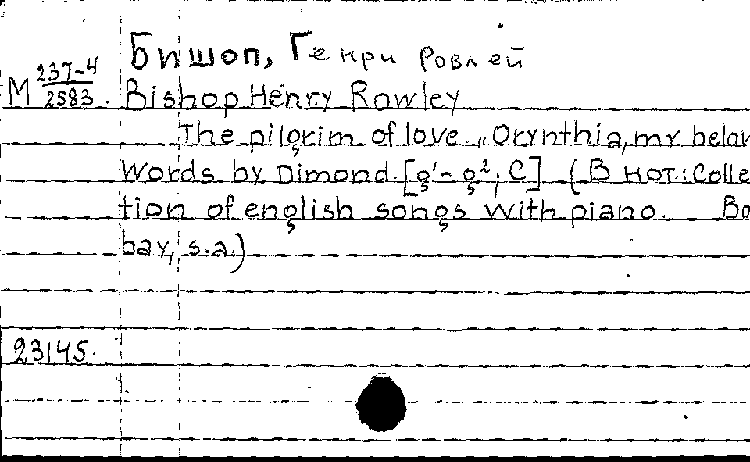 Бишоп, Генри Ровлей
М 237-4
2583. Bishop Henry Rowley
The pilgrim of love „Orynthia, my belov
words by Dimond. [g¹- g²; C] (В нот.: Colle
tion of english songs with piano. Bo
bay, s.a.)
23145.